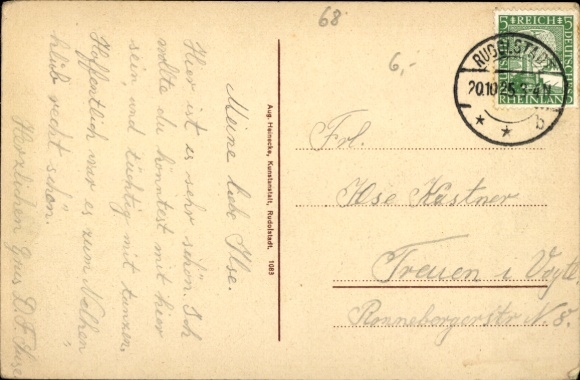 68
6,-
Meine liebe Ilse.
Hier ist es sehr schön. Ich
wollte du könntest mit hier
sein, und tüchtig mit tanzen.
Hoffentlich war es zum
recht schön.
Herzlichen Gruss D. F.
Aug. Heinecke, Kunstanstalt, Rudolstadt. 1083
5 REICH 5
DEUTSCHES
RHEINLAND
RUDOLSTADT
20.10.25. 3-4 N
* * b
Frl.
Ilse Kastner
Treuen i. Vogtl.
Ronneburgerstr N 8.